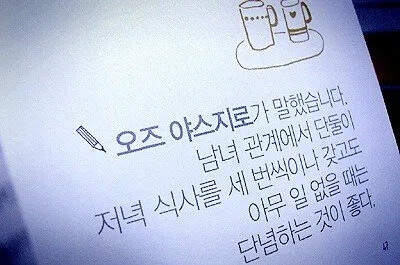 오즈 야스지로가 말했습니다.
남녀 관계에서 단둘이
저녁 식사를 세 번씩이나 갖고도
아무 일 없을 때는
단념하는 것이 좋다.